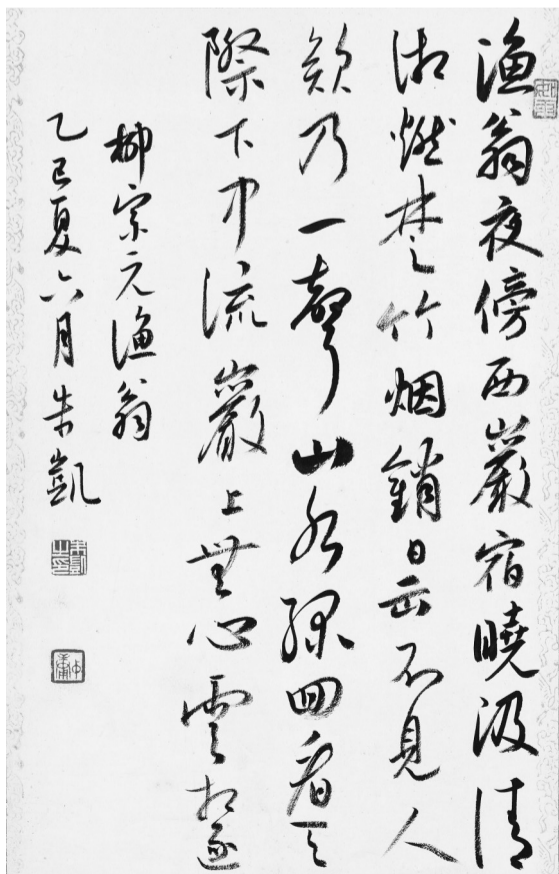 漁翁夜傍西巖宿曉汲清
湘燃楚竹烟銷日出不見人
欸乃一聲山水綠回看天
際下中流巖上無心雲相逐
柳宗元漁翁
乙巳夏六月朱凱